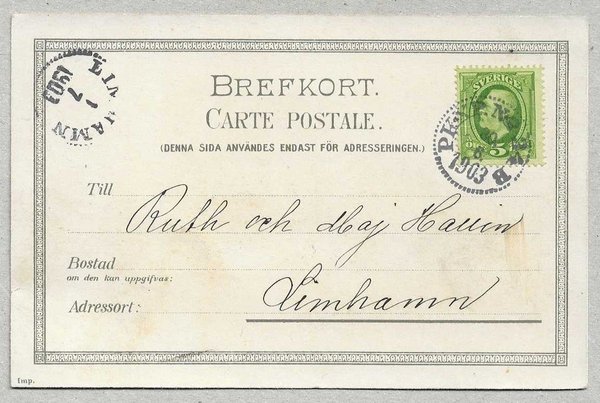 LIMHAMN
1
7
1903
BREFKORT.
CARTE POSTALE.
(DENNA SIDA ANVÄNDES ENDAST FÖR ADRESSERINGEN.)
SVERIGE
5
PKXP.N
6
1903
Till
Ruth och Maj Hallin
Bostad
om den kan uppgifvas:
Adressort:
Limhamn
Imp.